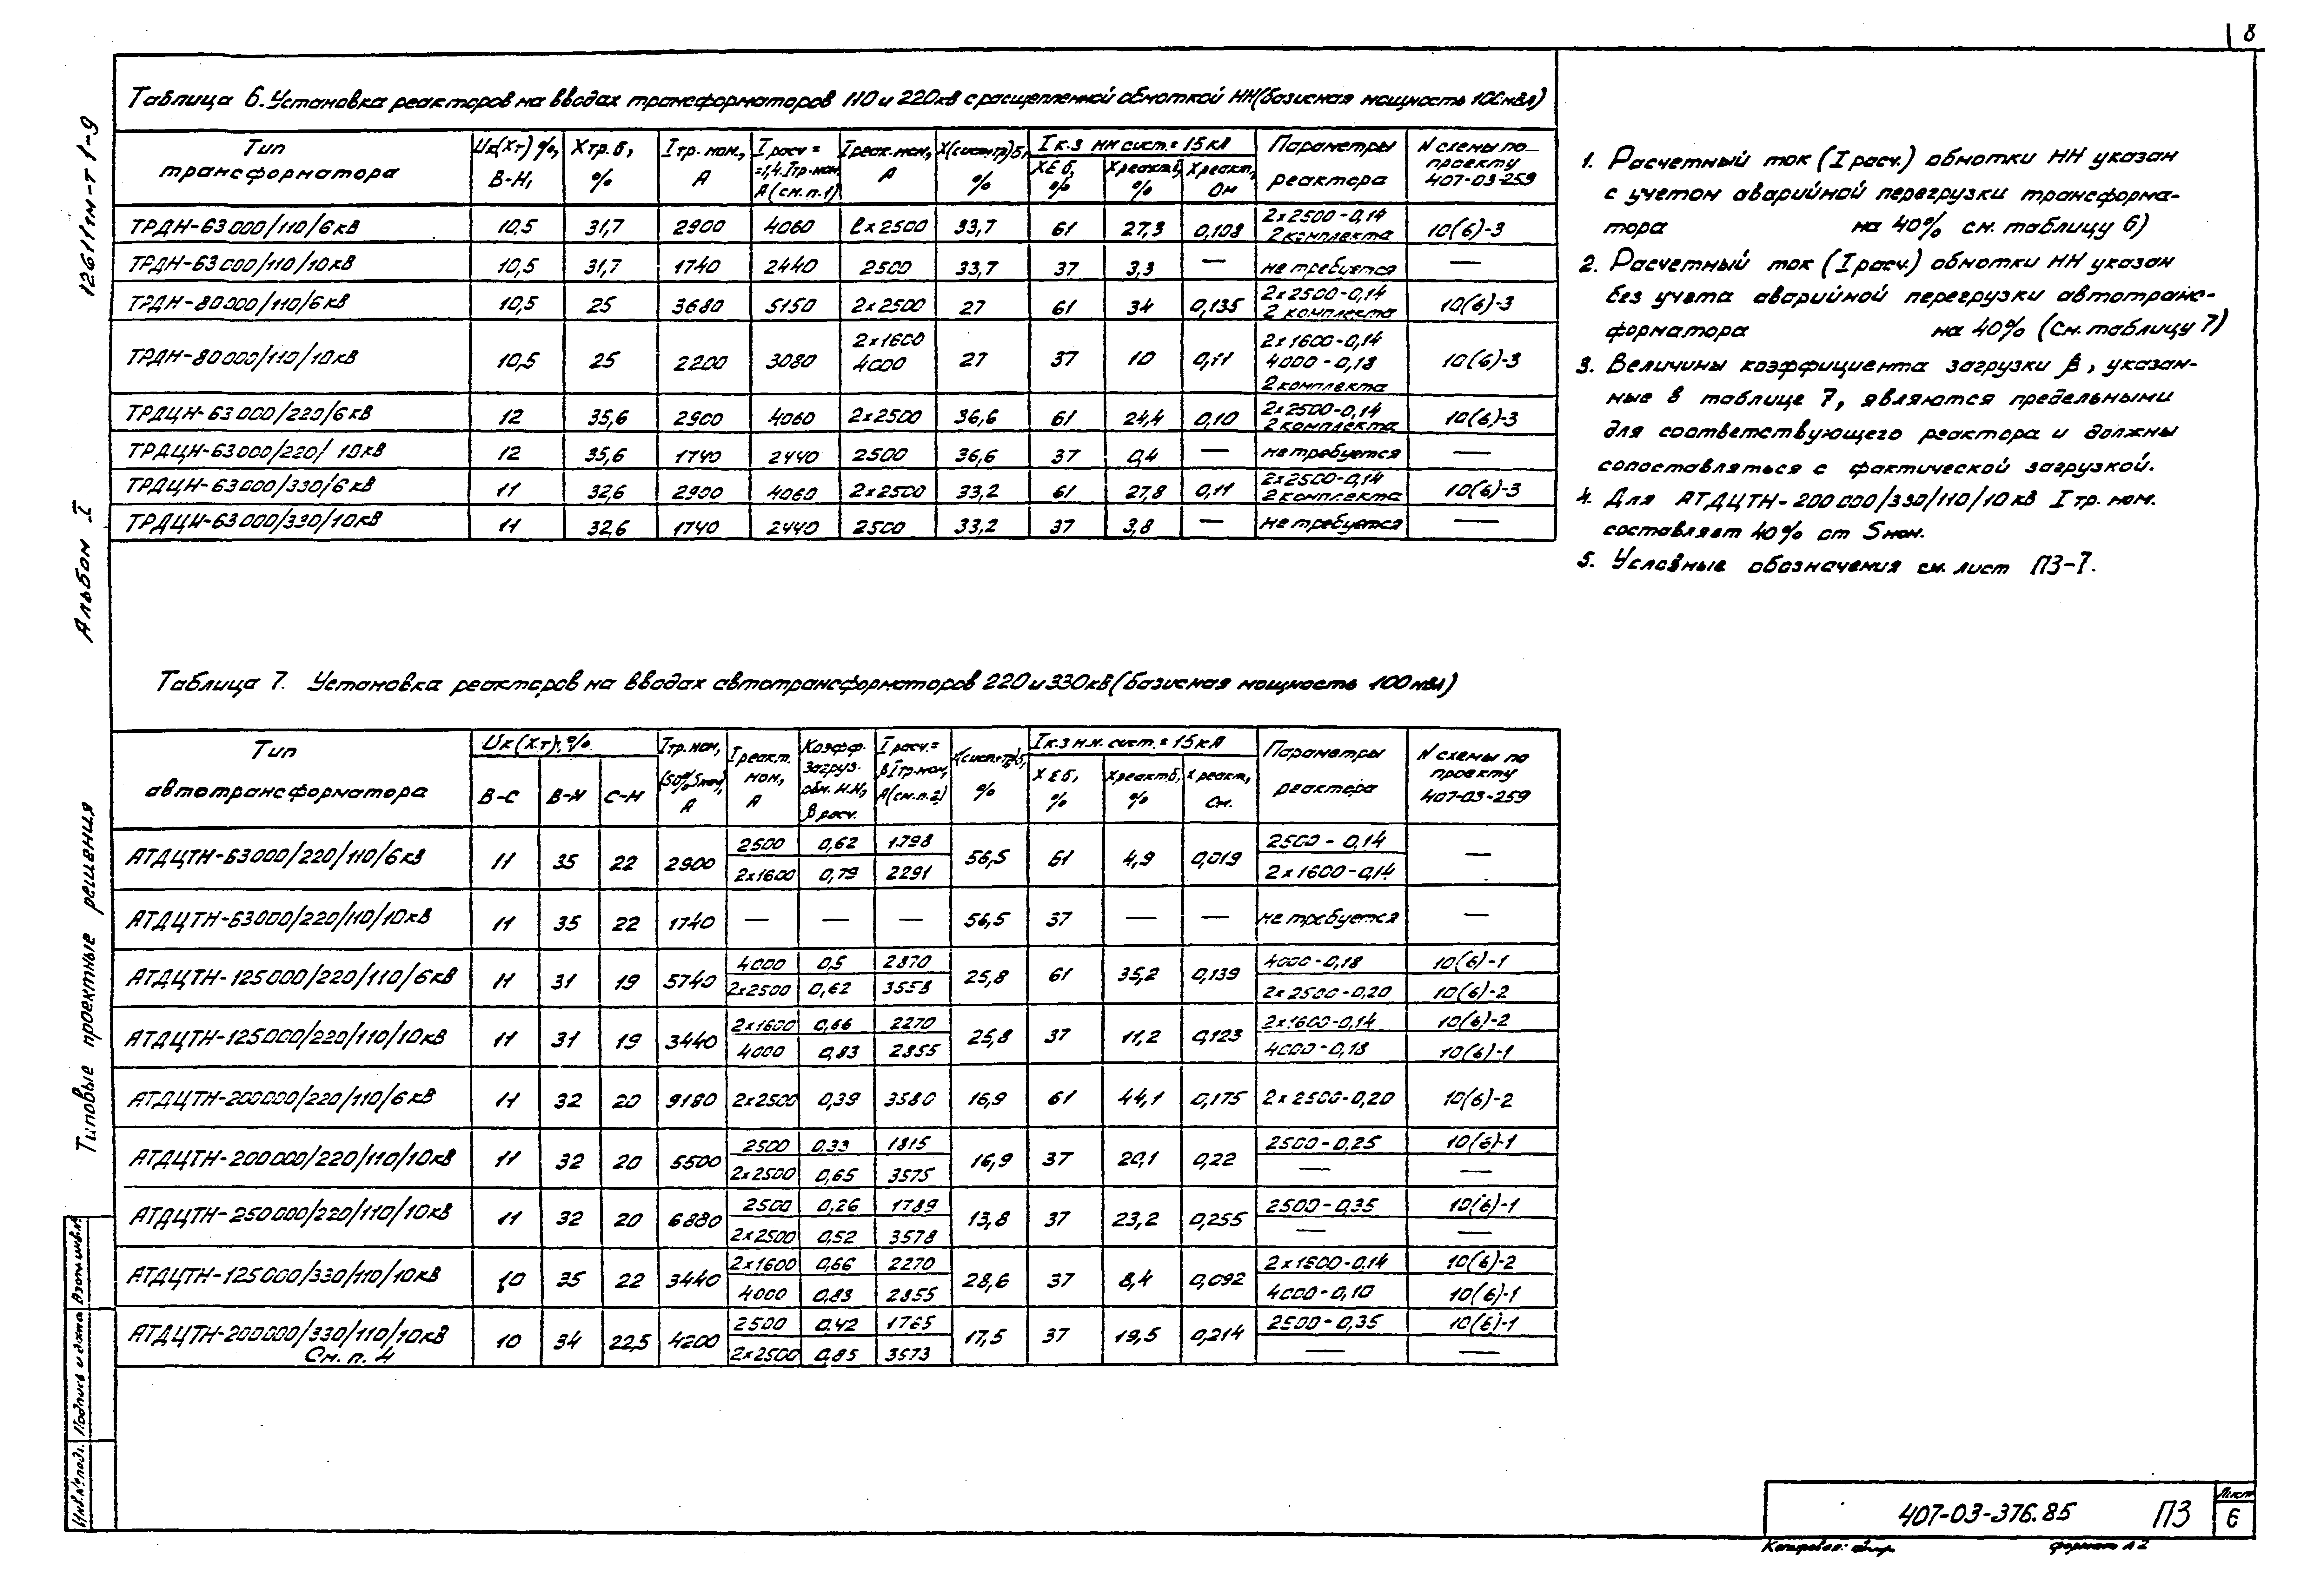 8
12611тм-т 1-9
Альбом I
Типовые проектные решения
Таблица 6. Установка реакторов на вводах трансформаторов 110 и 220кв с расщепленной обмоткой НН (базисная мощность 100мва)
Тип трансформатора | Uк(Хт) %, В-Н, | Хтр.б, % | Iтр. ном., А | Iрасч = =1,4.Iтр.ном А (см.п.1) | Iреак.ном, А | Х(сист.тр)б, % | Iк.з нн сист. = 15 кА | Параметры реактора | N схемы по проекту 407-03-259
ХΣб, % | Хреакт.б, % | Хреакт, Ом
ТРДН-63000/110/6кв | 10,5 | 31,7 | 2900 | 4060 | 2х2500 | 33,7 | 61 | 27,3 | 0,108 | 2х2500-0,14 2 комплекта | 10(6)-3
ТРДН-63000/110/10кв | 10,5 | 31,7 | 1740 | 2440 | 2500 | 33,7 | 37 | 3,3 | — | не требуется | —
ТРДН-80000/110/6кв | 10,5 | 25 | 3680 | 5150 | 2х2500 | 27 | 61 | 34 | 0,135 | 2х2500-0,14 2 комплекта | 10(6)-3
ТРДН-80000/110/10кв | 10,5 | 25 | 2200 | 3080 | 2х1600 4000 | 27 | 37 | 10 | 0,11 | 2х1600-0,14 4000-0,18 2 комплекта | 10(6)-3
ТРДЦН-63000/220/6кв | 12 | 35,6 | 2900 | 4060 | 2х2500 | 36,6 | 61 | 24,4 | 0,10 | 2х2500-0,14 2 комплекта | 10(6)-3
ТРДЦН-63000/220/10кв | 12 | 35,6 | 1740 | 2440 | 2500 | 36,6 | 37 | 0,4 | — | не требуется | —
ТРДЦН-63000/330/6кв | 11 | 32,6 | 2900 | 4060 | 2х2500 | 33,2 | 61 | 27,8 | 0,11 | 2х2500-0,14 2 комплекта | 10(6)-3
ТРДЦН-63000/330/10кв | 11 | 32,6 | 1740 | 2440 | 2500 | 33,2 | 37 | 3,8 | — | не требуется | —
1. Расчетный ток (Iрасч.) обмотки НН указан
с учетом аварийной перегрузки трансформа-
тора на 40% см. таблицу 6)
2. Расчетный ток (Iрасч.) обмотки НН указан
без учета аварийной перегрузки автотранс-
форматора на 40% (см. таблицу 7)
3. Величины коэффициента загрузки β, указан-
ные в таблице 7, являются предельными
для соответствующего реактора и должны
сопоставляться с фактической загрузкой.
4. Для АТДЦТН-200000/330/110/10кв Iтр. ном.
составляет 40% от Sном.
5. Условные обозначения см. лист ПЗ-7.
Таблица 7. Установка реакторов на вводах автотрансформаторов 220 и 330кв (базисная мощность 100мва)
Тип автотрансформатора | Uк(Хт), %. | Iтр.ном, (50%Sном), А | Iреакт. ном, А | Коэфф. загруз. обм. Н.Н, β расч. | Iрасч.= βIтр.ном, А(см.п.2) | Х(сист.тр)б, % | Iк.з н.н. сист. = 15кА | Параметры реактора | N схемы по проекту 407-03-259
В-С | В-Н | С-Н | ХΣб, % | Хреакт.б, % | Хреакт, Ом.
АТДЦТН-63000/220/110/6кв | 11 | 35 | 22 | 2900 | 2500 | 0,62 | 1798 | 56,5 | 61 | 4,9 | 0,019 | 2500-0,14 | —
2х1600 | 0,79 | 2291 | 2х1600-0,14
АТДЦТН-63000/220/110/10кв | 11 | 35 | 22 | 1740 | — | — | — | 56,5 | 37 | — | — | не требуется | —
АТДЦТН-125000/220/110/6кв | 11 | 31 | 19 | 5740 | 4000 | 0,5 | 2870 | 25,8 | 61 | 35,2 | 0,139 | 4000-0,18 | 10(6)-1
2х2500 | 0,62 | 3558 | 2х2500-0,20 | 10(6)-2
АТДЦТН-125000/220/110/10кв | 11 | 31 | 19 | 3440 | 2х1600 | 0,66 | 2270 | 25,8 | 37 | 11,2 | 0,123 | 2х1600-0,14 | 10(6)-2
4000 | 0,83 | 2855 | 4000-0,18 | 10(6)-1
АТДЦТН-200000/220/110/6кв | 11 | 32 | 20 | 9180 | 2х2500 | 0,39 | 3580 | 16,9 | 61 | 44,1 | 0,175 | 2х2500-0,20 | 10(6)-2
АТДЦТН-200000/220/110/10кв | 11 | 32 | 20 | 5500 | 2500 | 0,33 | 1815 | 16,9 | 37 | 20,1 | 0,22 | 2500-0,25 | 10(6)-1
2х2500 | 0,65 | 3575 | — | —
АТДЦТН-250000/220/110/10кв | 11 | 32 | 20 | 6880 | 2500 | 0,26 | 1789 | 13,8 | 37 | 23,2 | 0,255 | 2500-0,35 | 10(6)-1
2х2500 | 0,52 | 3578 | — | —
АТДЦТН-125000/330/110/10кв | 10 | 35 | 22 | 3440 | 2х1600 | 0,66 | 2270 | 28,6 | 37 | 8,4 | 0,092 | 2х1600-0,14 | 10(6)-2
4000 | 0,83 | 2855 | 4000-0,10 | 10(6)-1
АТДЦТН-200000/330/110/10кв См. п. 4 | 10 | 34 | 22,5 | 4200 | 2500 | 0,42 | 1765 | 17,5 | 37 | 19,5 | 0,214 | 2500-0,35 | 10(6)-1
2х2500 | 0,85 | 3573 | — | —
Инв.№подл. Подпись и дата Взам.инв.№
407-03-376.85 ПЗ
Лист
6
Копировал:
формат А2